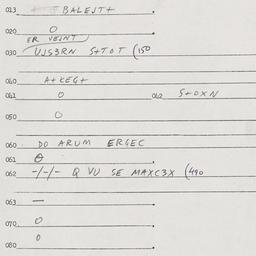 013 BALEJT+
020 O
ER VEINT
030 UJS3RN S+TOT (150
040 A+KEG+
041 O 042 S+OXN
050 O
060 DO ARUM ERGEC
061 O
062 -/-/- Q VU SE MAXC3X (490
063 —
070 O
080 O